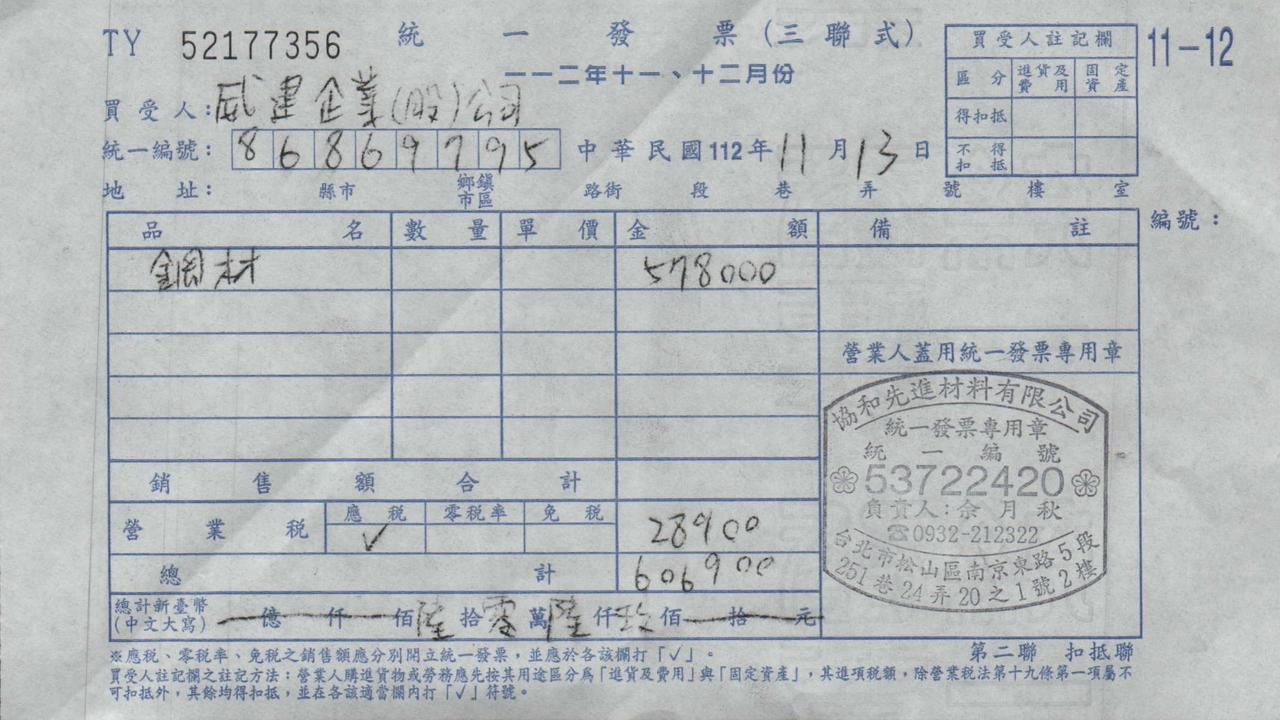 TY 52177356 統一發票(三聯式)
一一二年十一、十二月份
11-12
買受人註記欄
區分 進貨及費用 固定資產
得扣抵
不得扣抵
買受人:威建企業(股)公司
統一編號: 86869795 中華民國112年11月13日
地址: 縣市 鄉鎮市區 路街 段 巷 弄 號 樓 室
品名 數量 單價 金額 備註 編號:
鋼材 578000
營業人蓋用統一發票專用章
協和先進材料有限公司
統一發票專用章
統一編號
53722420
負責人:余月秋
☎0932-212322
台北市松山區南京東路5段
251巷24弄20之1號2樓
銷售額合計
營業稅 應稅 零稅率 免稅
✓ 28900
總計 606900
總計新臺幣(中文大寫) 億 仟 佰 陸拾零萬陸仟玖佰 拾 元
※應稅、零稅率、免稅之銷售額應分別開立統一發票,並應於各該欄打「✓」。
第二聯 扣抵聯
買受人註記欄之註記方法:營業人購進貨物或勞務應先按其用途區分為「進貨及費用」與「固定資產」,其進項稅額,除營業稅法第十九條第一項屬不
可扣抵外,其餘均得扣抵,並在各該適當欄內打「✓」符號。